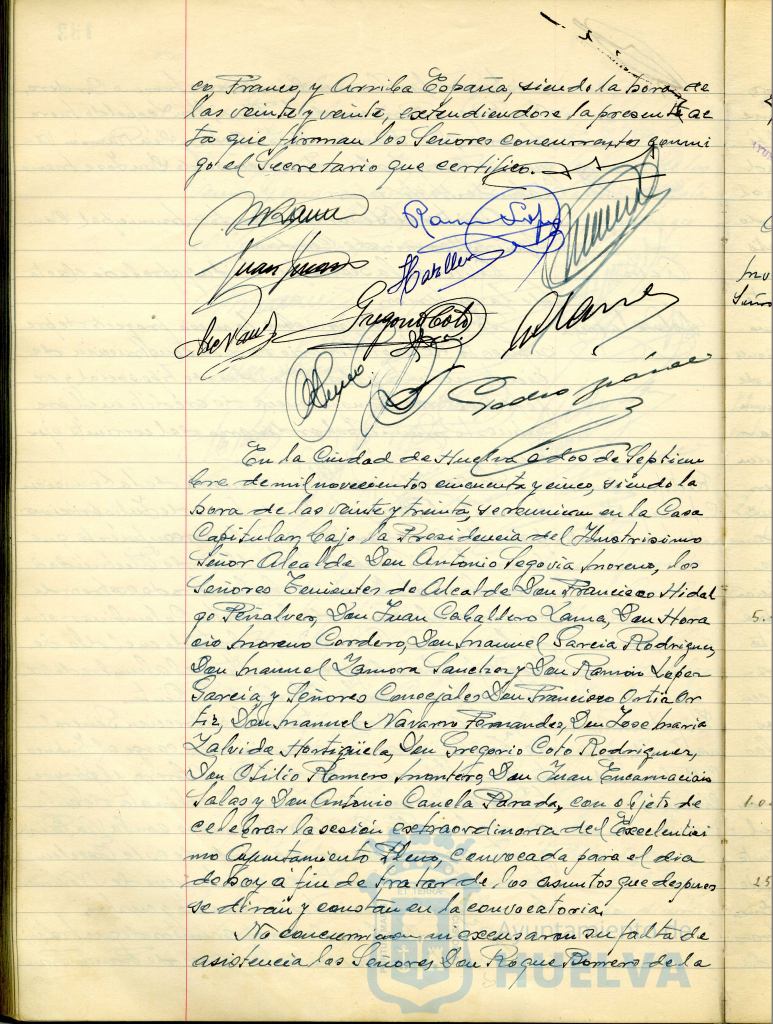 co, Franco, y Arriba España, siendo la hora de
las veinte y veinte, extendiendose la presente ac
ta que firman los Señores concurrentes conmi
go el Secretario que certifico.
Ramón López
Gregorio Coto
En la Ciudad de Huelva á dos de Septiem
bre de mil novecientos cincuenta y cinco, siendo la
hora de las veinte y treinta, se reunieron en la Casa
Capitular, bajo la Presidencia del Ilustrisimo
Señor Alcalde Don Antonio Segovia Moreno, los
Señores Tenientes de Alcalde Don Francisco Hidal
go Peñalver, Don Juan Caballero Lama, Don Hora
cio Moreno Cordero, Don Manuel Garcia Rodriguez,
Don Manuel Zamora Sanchez y Don Ramón Lopez
Garcia y Señores Concejales Don Francisco Ortiz Or
tiz, Don Manuel Navarro Fernandez, Don Jose Maria
Zalvide Hortigüela, Don Gregorio Coto Rodriguez,
Don Otilio Romero Montero, Don Juan Encarnación
Salas y Don Antonio Canela Parada, con objeto de
celebrar la sesión extraordinaria del Excelentisi
mo Ayuntamiento Pleno, convocada para el dia
de hoy á fin de tratar de los asuntos que despues
se dirán y constan en la convocatoria.
No concurrieron ni excusaron su falta de
asistencia los Señores Don Roque Borrero de la
Ayuntamiento de
HUELVA